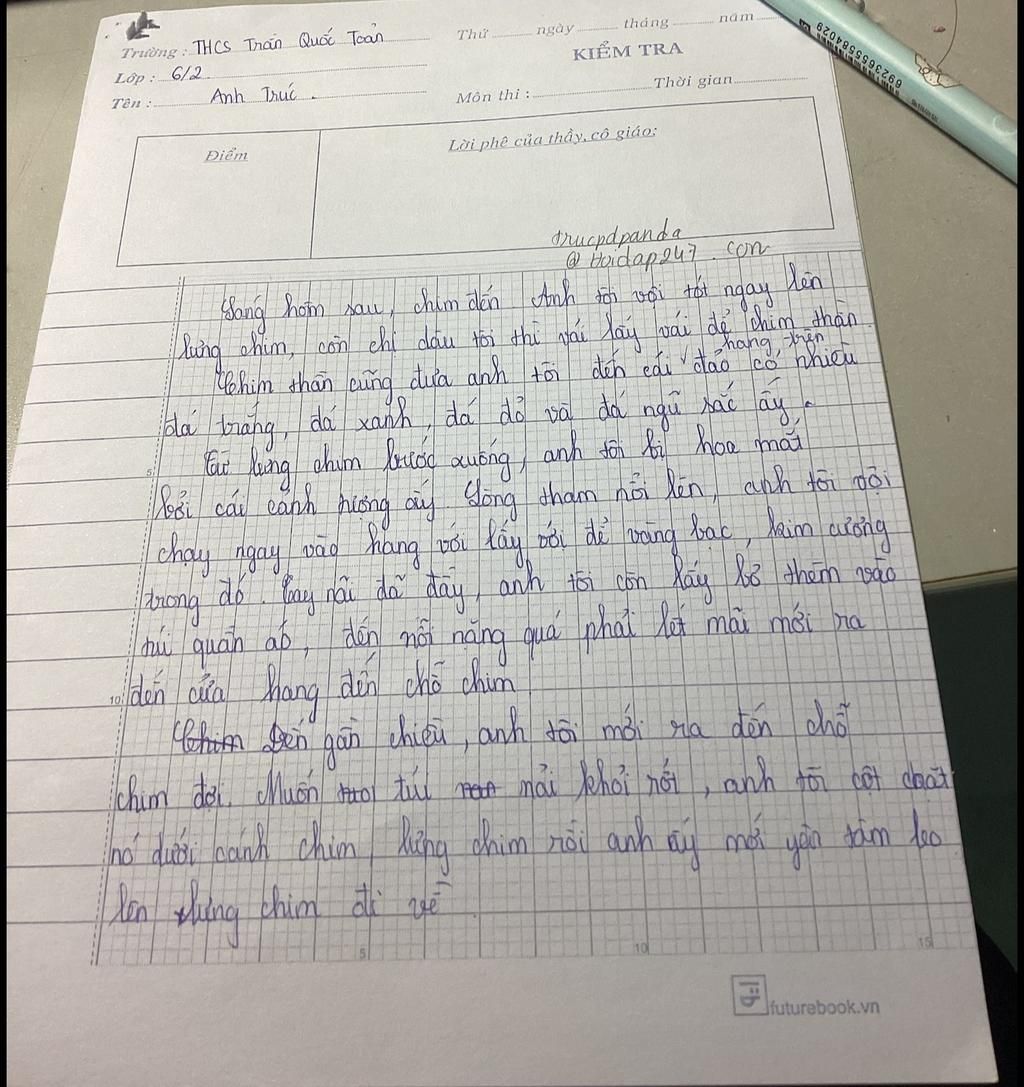 Trường : THCS Trần Quốc Toản
Thứ ........ ngày ........ tháng ........ năm
Lớp : 6/2
KIỂM TRA
Tên : Anh Trúc .
Môn thi : ........ Thời gian
Điểm
Lời phê của thầy, cô giáo:
trucpdpanda
@ Hoidap247 . con
Sáng hôm sau, chim đến Anh tôi vội tót ngay lên
lưng chim, còn chị dâu tôi thì vái lấy vái để chim thần.
hang trên
Chim thần cũng đưa anh tôi đến cái đảo có nhiều
đá trắng, đá xanh, đá đỏ và đá ngũ sắc ấy.
Từ lưng chim bước xuống, anh tôi bị hoa mắt
bởi cái cảnh tượng ấy. Lòng tham nổi lên, anh tôi vội
chạy ngay vào hang với lấy với để vàng bạc, kim cương
trong đó. Tay nãi đã đầy, anh tôi còn lấy bỏ thêm vào
túi quần áo, đến nỗi nặng quá phải lết mãi mới ra
đến cửa hang đến chỗ chim
Chim Đến gần chiều, anh tôi mới ra đến chỗ
chim đợi. Muốn túi nải khỏi rớt, anh tôi cột chặt
nó dưới cánh chim, lưng chim rồi anh ấy mới yên tâm leo
lên lưng chim đi về
5
10
5
10
15
futurebook.vn
6923655584029